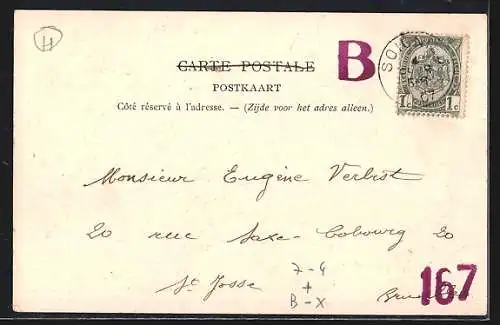 H
CARTE POSTALE
B
POSTKAART
Côté réservé à l'adresse. — (Zijde voor het adres alleen.)
1c 1c
Monsieur Eugène Verbist
20 rue Saxe-Cobourg 20
St Josse
7-4
+
B-X
167